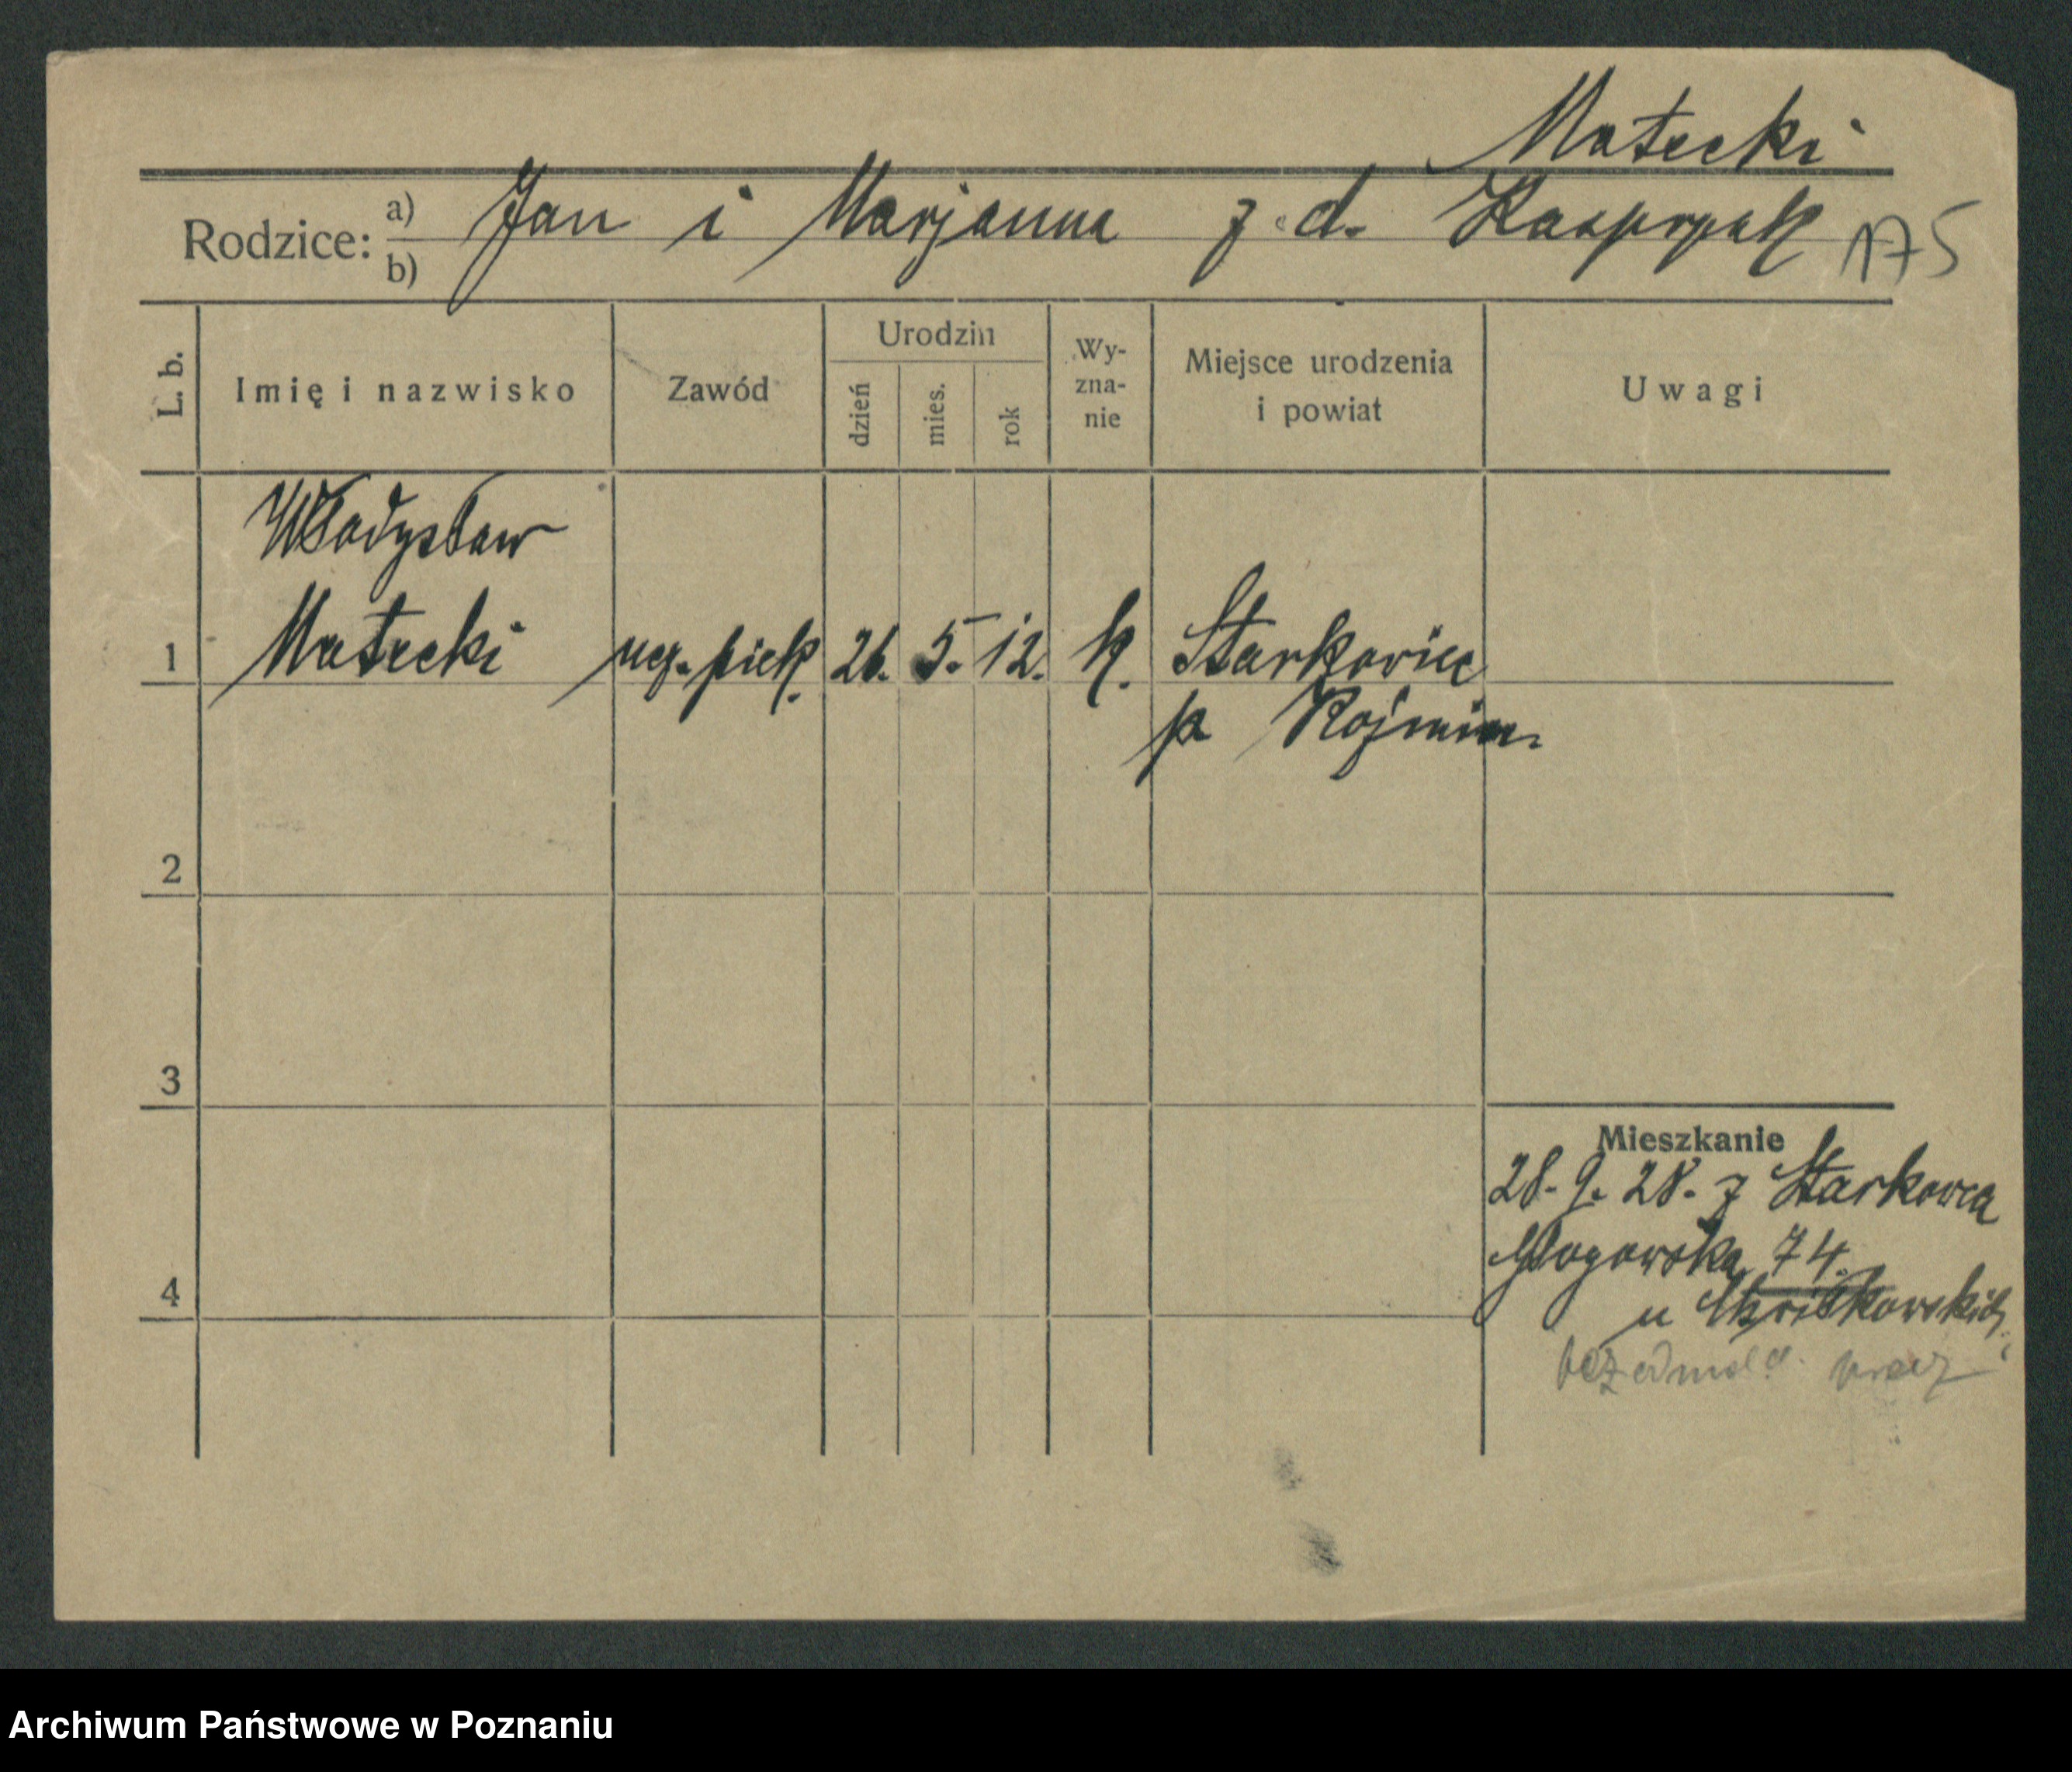 Małecki
Rodzice: a) b) Jan i Marjanna z. d. Kasprzak 175
L. b. Imię i nazwisko Zawód Urodzin dzień mies. rok Wy-zna-nie Miejsce urodzenia i powiat Uwagi
Władysław
1 Małecki ucz. piek. 26. 5. 12. k. Starkowiec
p Kozmin.
2
3
Mieszkanie
28. 9. 28. z Starkowca
Głogowska 74.
4 u
bez
Archiwum Państwowe w Poznaniu